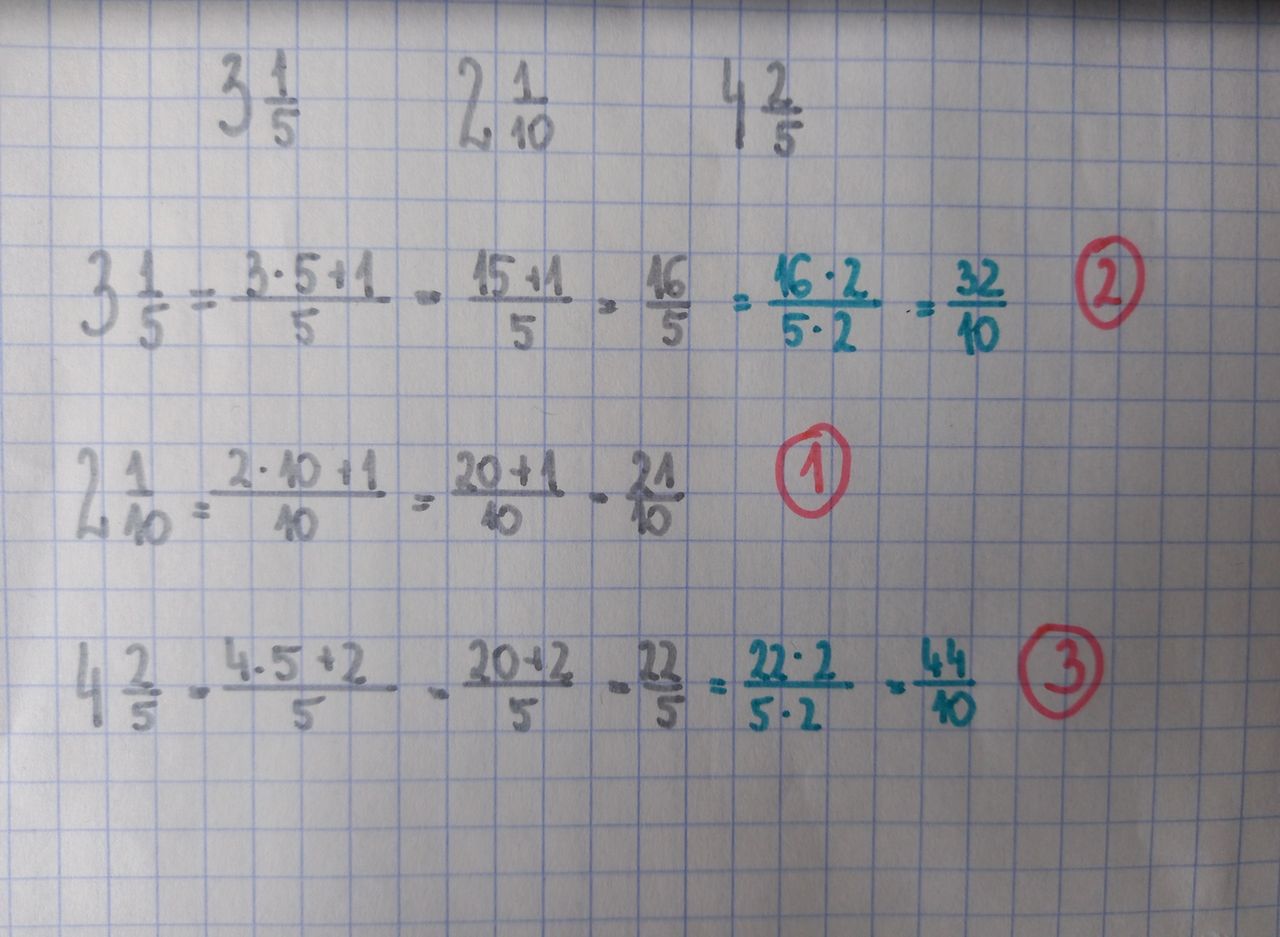 3 1/5 2 1/10 4 2/5
3 1/5 = (3·5+1)/5 = (15+1)/5 = 16/5 = (16·2)/(5·2) = 32/10 ②
2 1/10 = (2·10+1)/10 = (20+1)/10 = 21/10 ①
4 2/5 = (4·5+2)/5 = (20+2)/5 = 22/5 = (22·2)/(5·2) = 44/10 ③